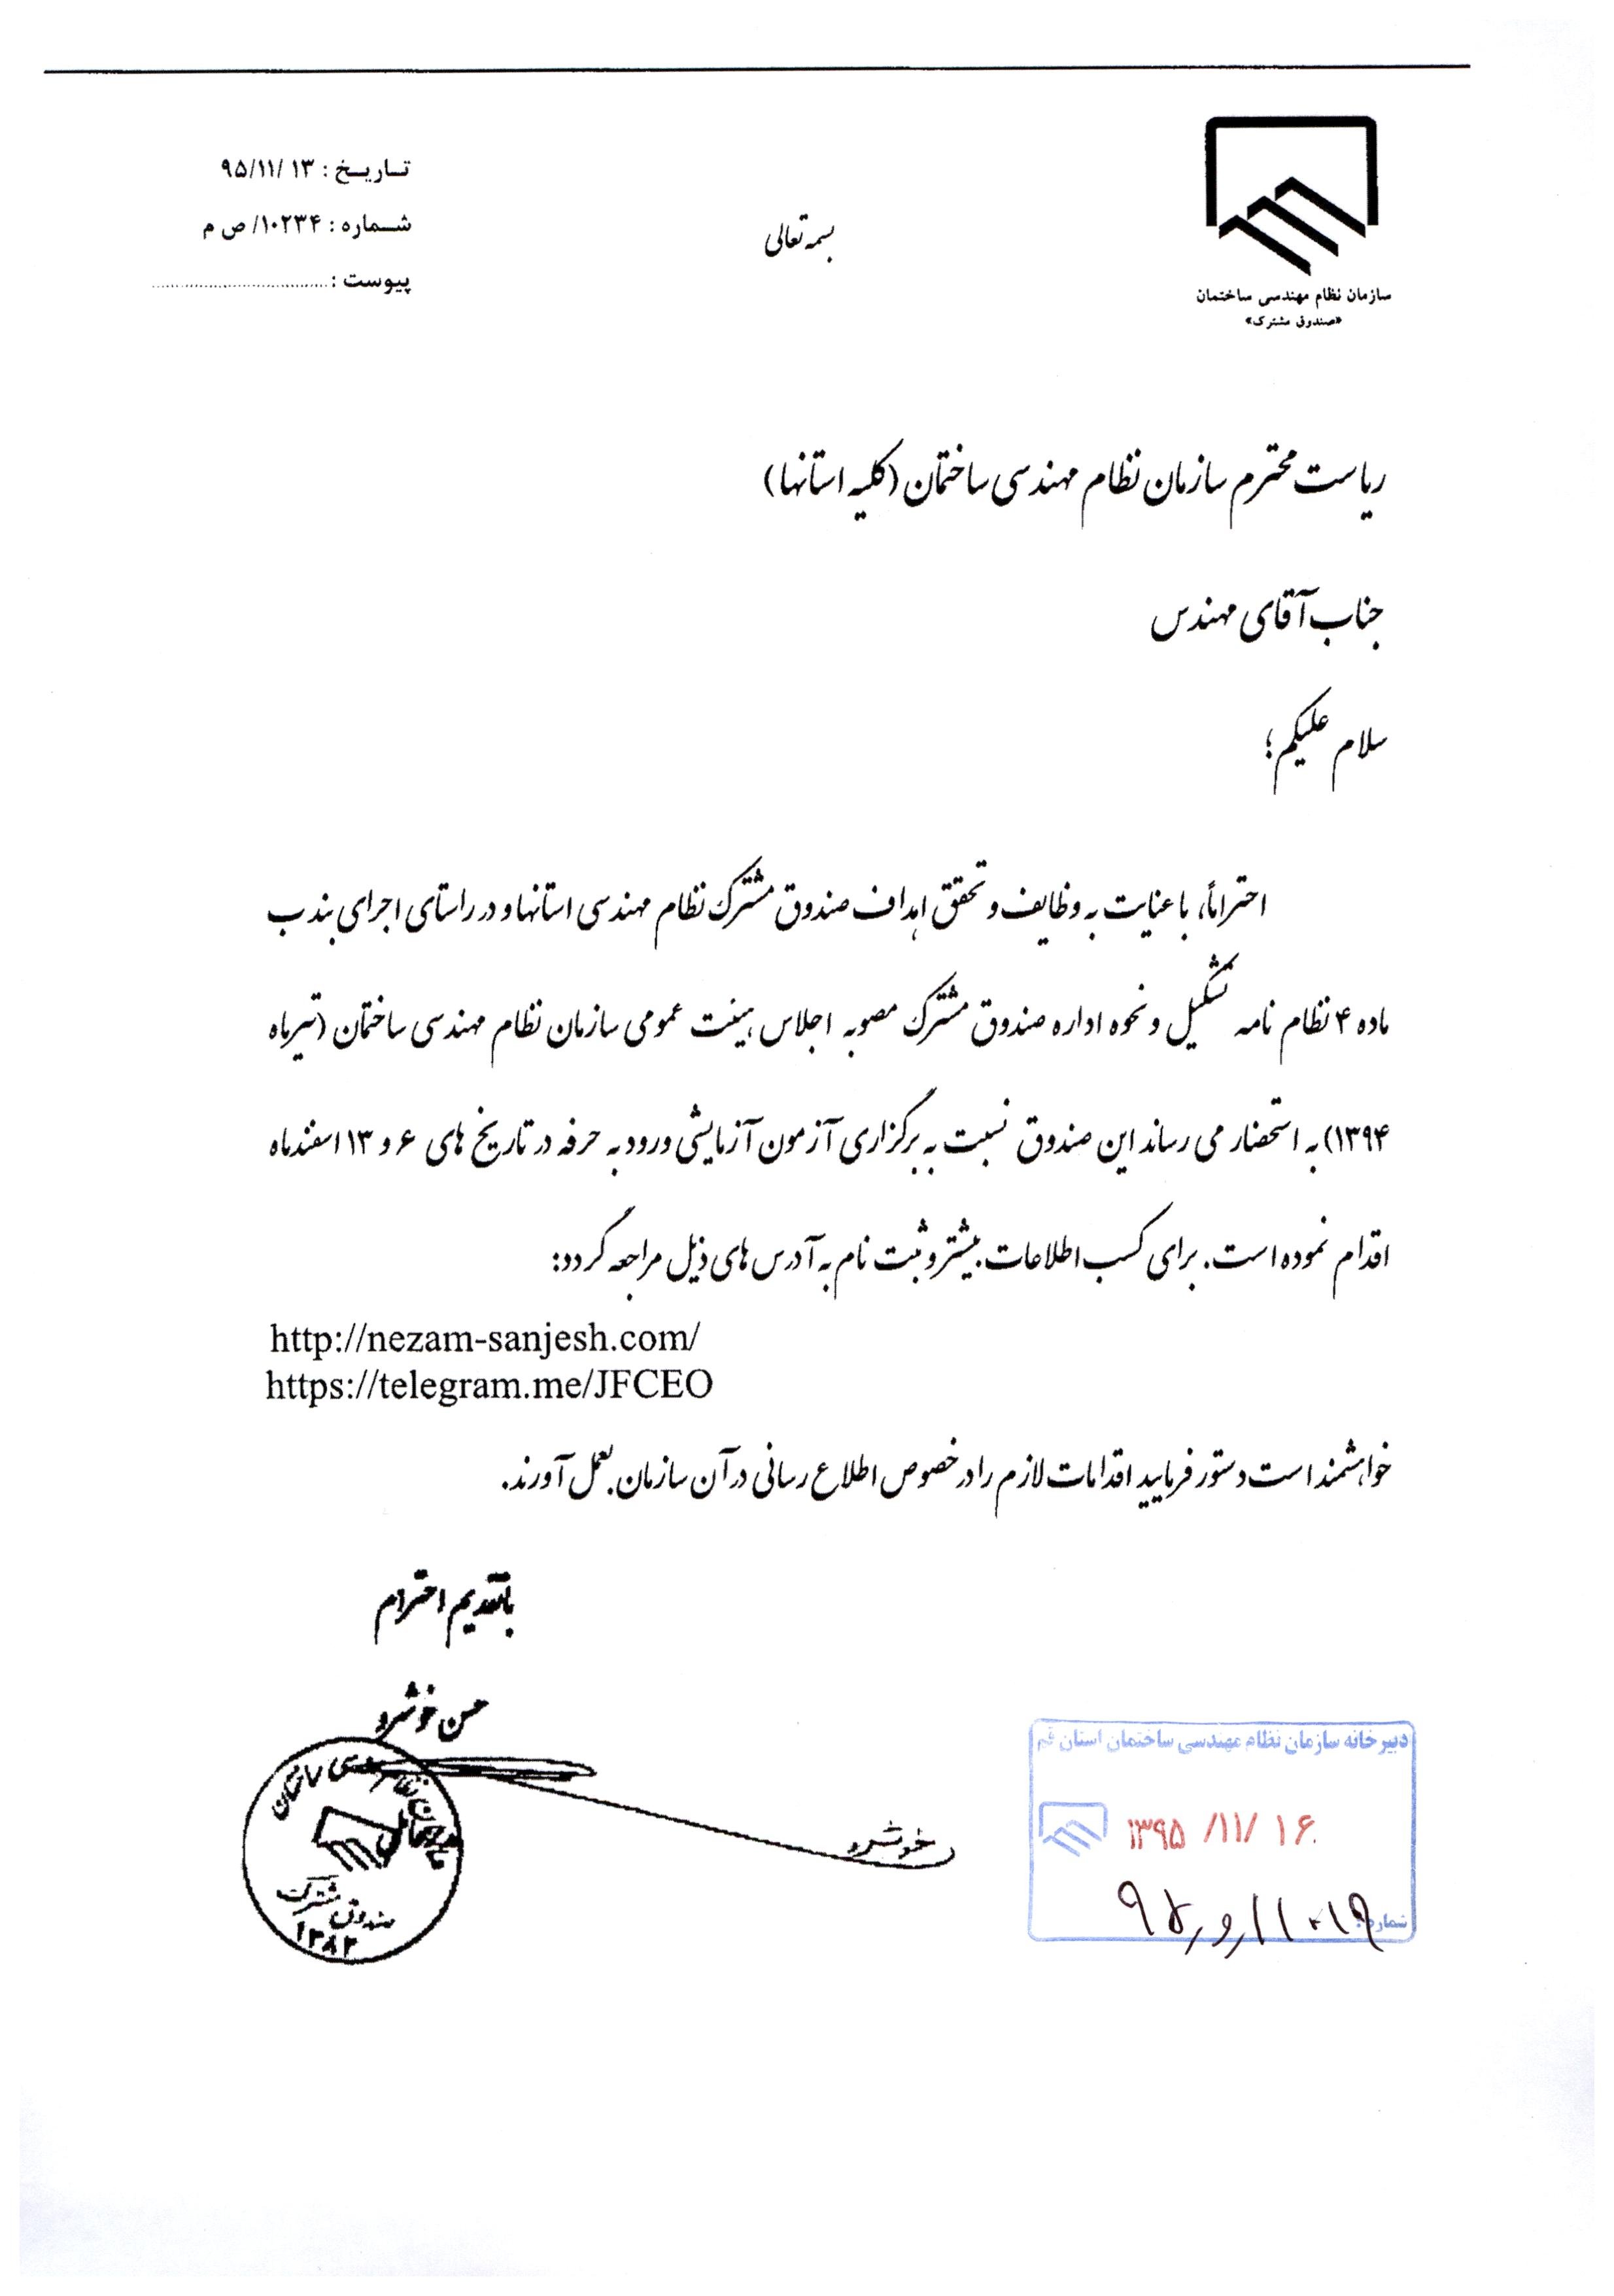 تاریخ : ۹۵/۱۱/۱۳
شماره : ۱۰۲۳۴/ ص م
پیوست :
بسمه تعالی
سازمان نظام مهندسی ساختمان
«صندوق مشترک»
ریاست محترم سازمان نظام مهندسی ساختمان (کلیه استانها)
جناب آقای مهندس
سلام علیکم؛
احتراماً، با عنایت به وظایف و تحقق اهداف صندوق مشترک نظام مهندسی استانها و در راستای اجرای بند ب
ماده ۴ نظام نامه تشکیل و نحوه اداره صندوق مشترک مصوبه اجلاس هیئت عمومی سازمان نظام مهندسی ساختمان (تیرماه
۱۳۹۴) به استحضار می رساند این صندوق نسبت به برگزاری آزمون آزمایشی ورود به حرفه در تاریخ های ۶ و ۱۳ اسفندماه
اقدام نموده است. برای کسب اطلاعات بیشتر و ثبت نام به آدرس های ذیل مراجعه گردد:
http://nezam-sanjesh.com/
https://telegram.me/JFCEO
خواهشمند است دستور فرمایید اقدامات لازم را در خصوص اطلاع رسانی در آن سازمان بعمل آورند.
با تقدیم احترام
حسن خوشرو
خوشرو
سازمان نظام مهندسی ساختمان
صندوق مشترک
۱۳۸۲
دبیرخانه سازمان نظام مهندسی ساختمان استان قم
۱۳۹۵ /۱۱/ ۱۶
شماره: